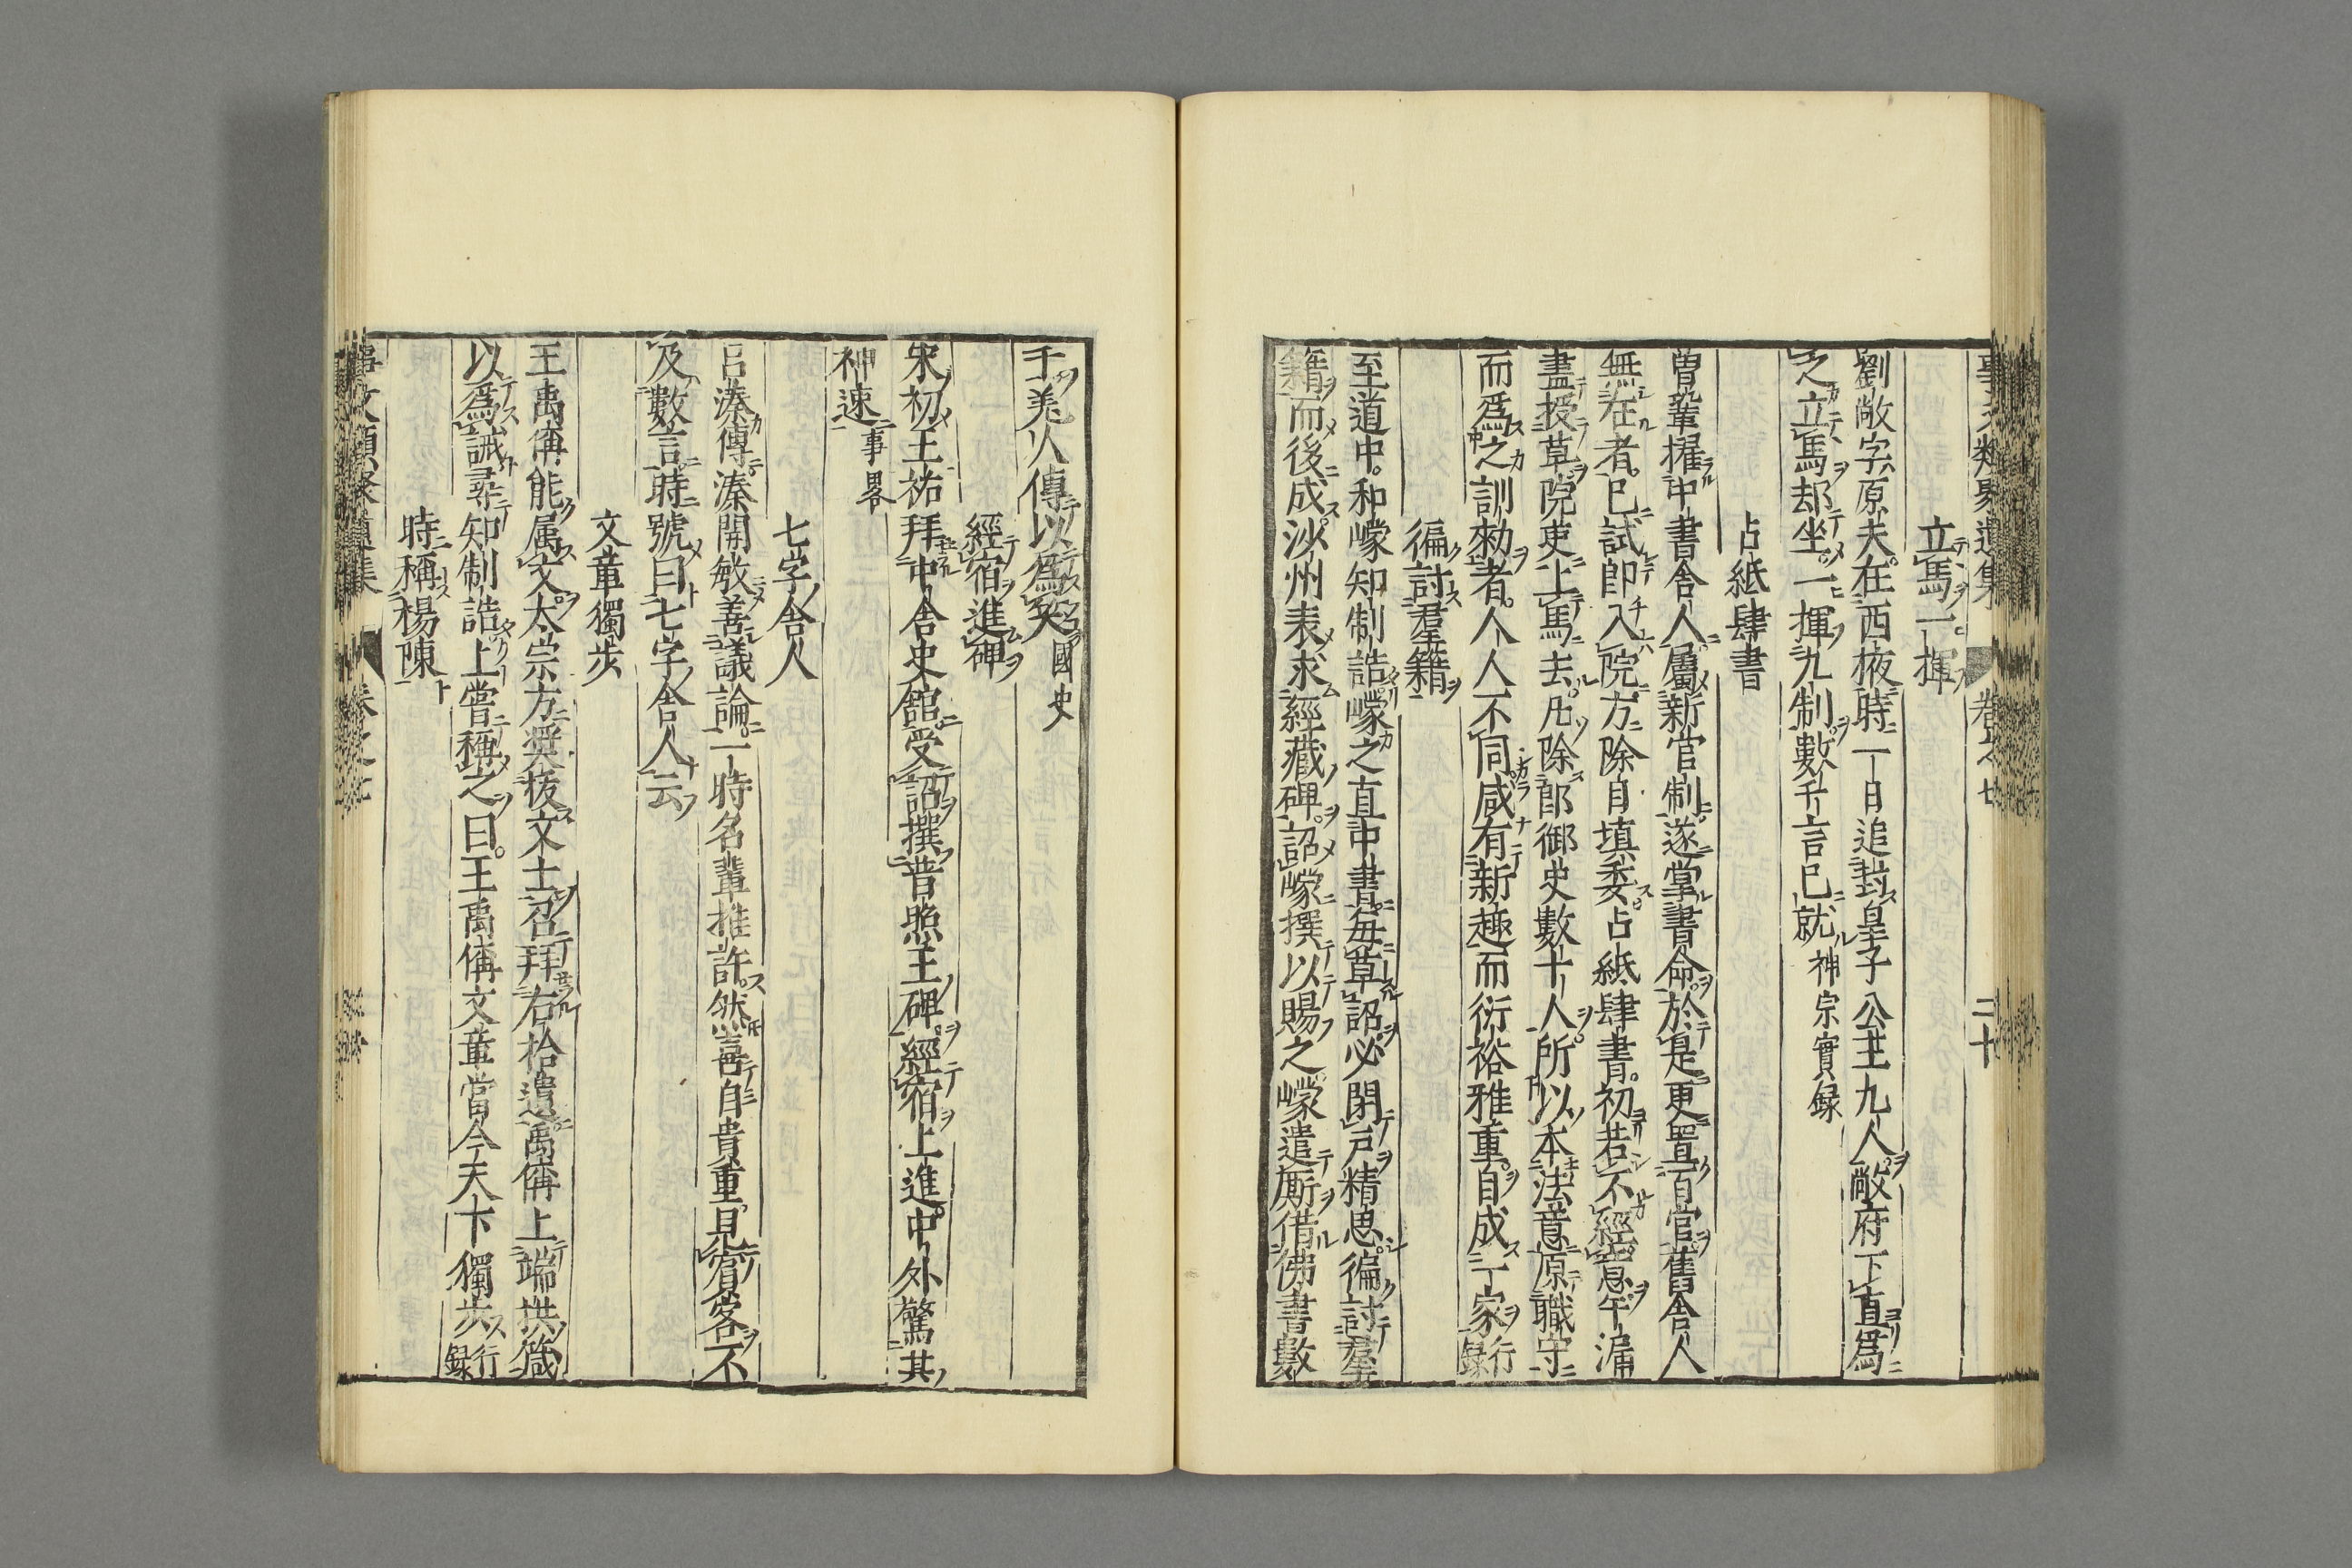 事文類聚遺集 卷之七 二十
立馬一揮
劉敞字原夫在西掖時一日追封皇子公主九人敞府下直爲
之立馬却坐一揮九制數千言已就神宗實録
占紙肆書
曽鞏擢中書舍人屬新官制遂掌書命於是更置百官舊舍人
無在者已試即入院方除自填委占紙肆書初若不經意午漏
盡授草院吏上馬去凡除郎御史數十人所以本法意原職守
而爲之訓勑者人人不同咸有新趣而衍裕雅重自成一家行録
徧討羣籍
至道中和㠓知制誥㠓之直中書每草詔必閉戸精思徧討羣
籍而後成沙州表求經藏碑詔㠓撰以賜之㠓遣厮借佛書數
千羙人傳以爲笑國史
經宿進碑
宋初王祐拜中舍史舘受詔撰普照王碑經宿上進中外驚其
神速事畧
七字舍人
吕溱傳溱開敏善議論一時名輩推許然喜自貴重見賓客不
及數言時號曰七字舍人云
文章獨步
王禹偁能属文太宗方奨拔文士召拜右拾遺禹偁上端拱箴
以爲誡尋知制誥上嘗稱之曰王禹偁文章當今天下獨步行録
時稱楊陳
事文類聚遺集 卷之七